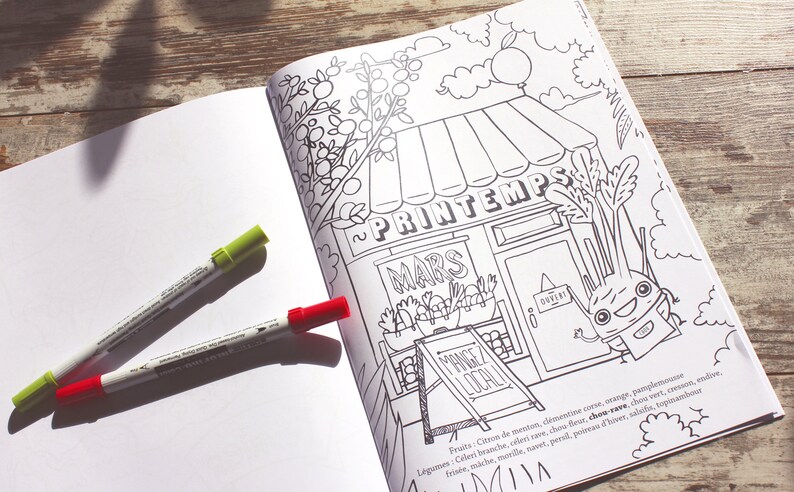 ~PRINTEMPS~
MARS
OUVERT
MANGEZ
LOCAL!
Fruits : Citron de menton, clémentine corse, orange, pamplemousse
Légumes : Céleri branche, céleri rave, chou-fleur, chou-rave, chou vert, cresson, endive,
frisée, mâche, morille, navet, persil, poireau d'hiver, salsifis, topinambour